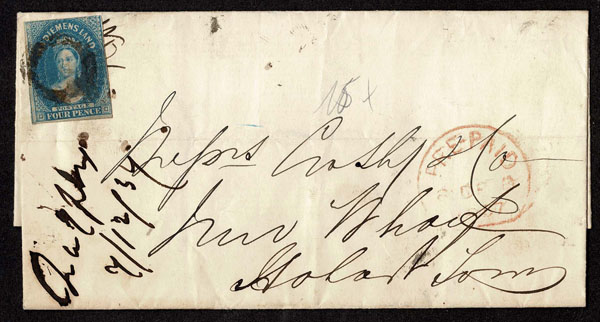 DIEMENS LAND
POSTAGE
FOUR PENCE
15 x
PRE-PAID
DE
Messrs Crosby & Co
New Wharf
Hobart Town
7/12/57